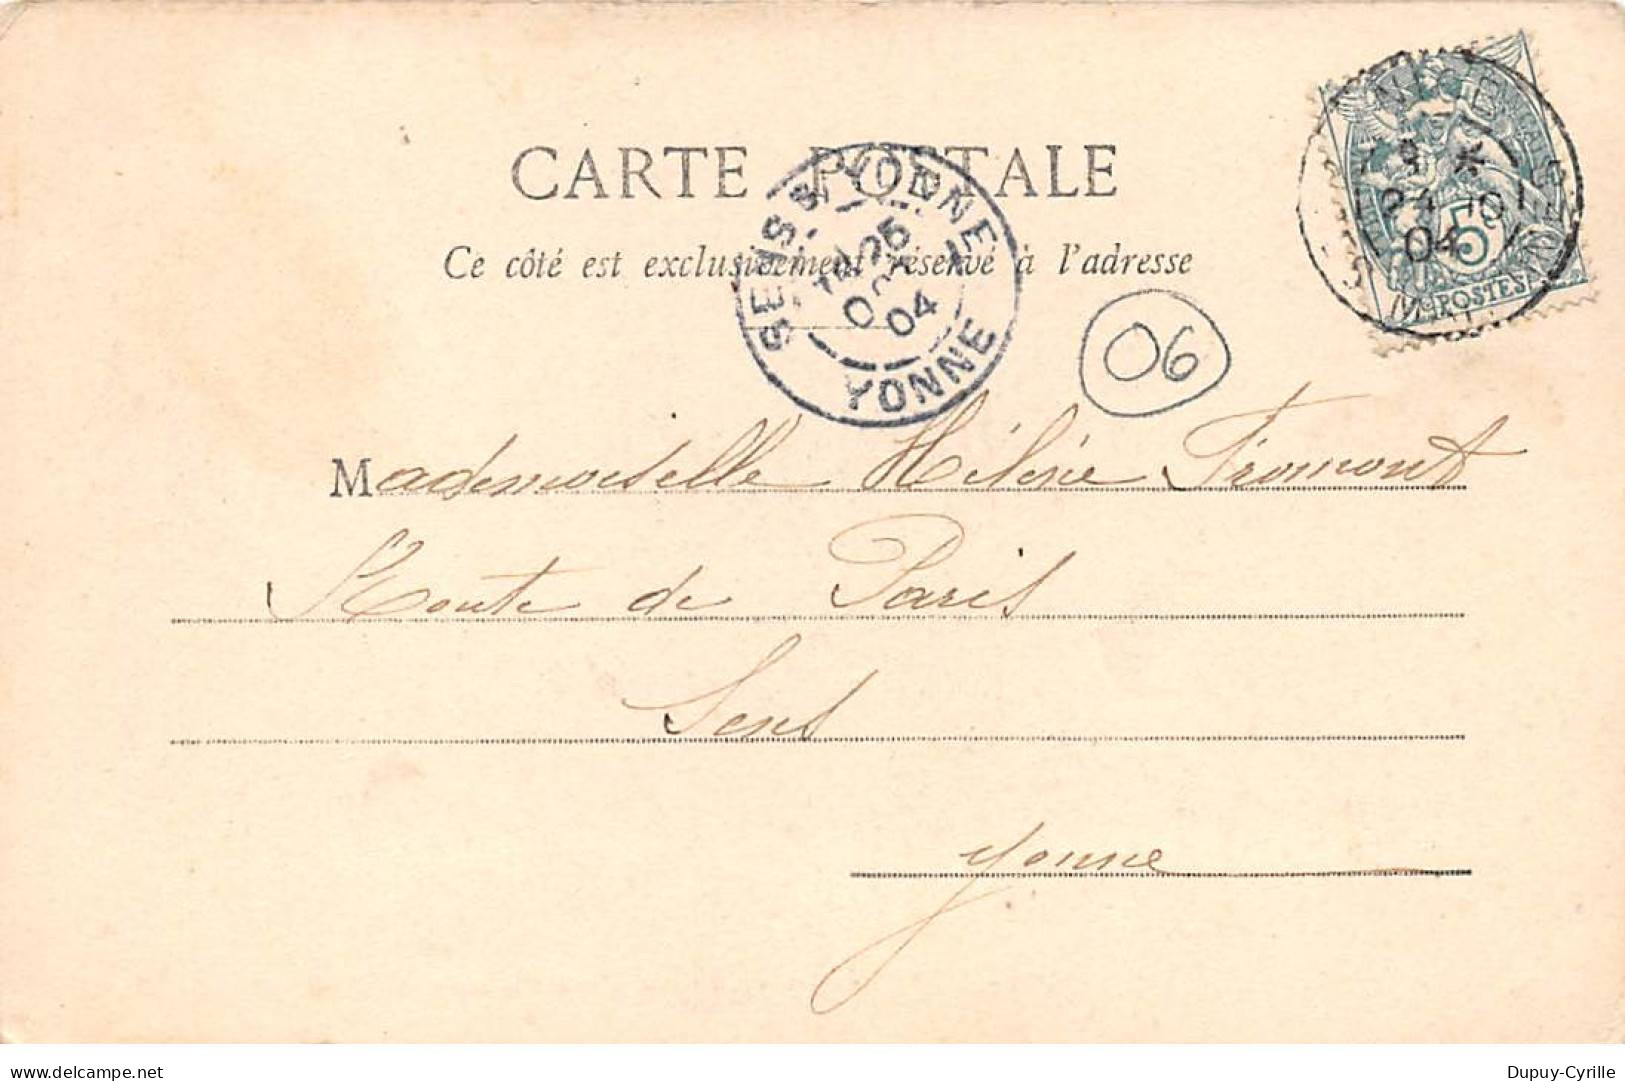 CARTE POSTALE
Ce côté est exclusivement réservé à l'adresse
NICE
24
04
5
POSTES
YONNE
25
04
YONNE
06
Mademoiselle Hélène Fromont
Route de Paris
Sens
Yonne
delcampe.net
Dupuy-Cyrille